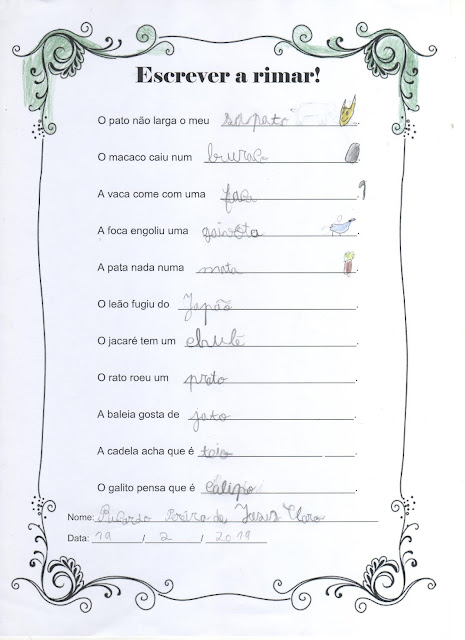 Escrever a rimar!
O pato não larga o meu sapato.
O macaco caiu num buraco.
A vaca come com uma faca.
A foca engoliu uma gaivota.
A pata nada numa mata.
O leão fugiu do Japão.
O jacaré tem um chulé.
O rato roeu um preto.
A baleia gosta de jato.
A cadela acha que é
O galito pensa que é calipo.
Nome: Pereira de Jesus
Data: 19/2/2019